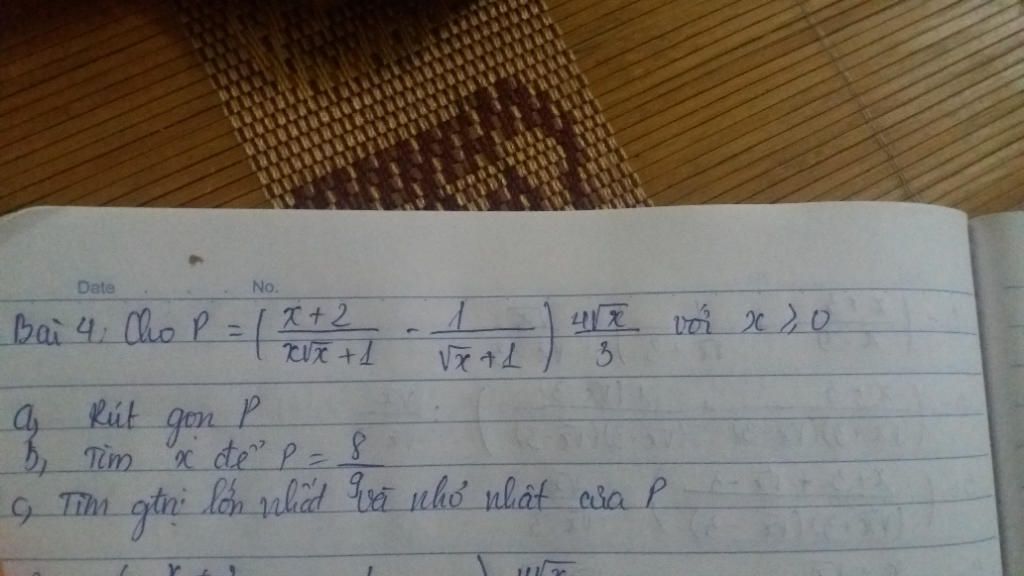 Date No.
Bài 4, Cho P = ( x+2 / x√x +1 - 1 / √x +1 ) 4√x / 3 với x ≥ 0
a, Rút gọn P
b, Tìm x để P = 8 / 9
c, Tìm gtrị lớn nhất và nhỏ nhất của P
4√x